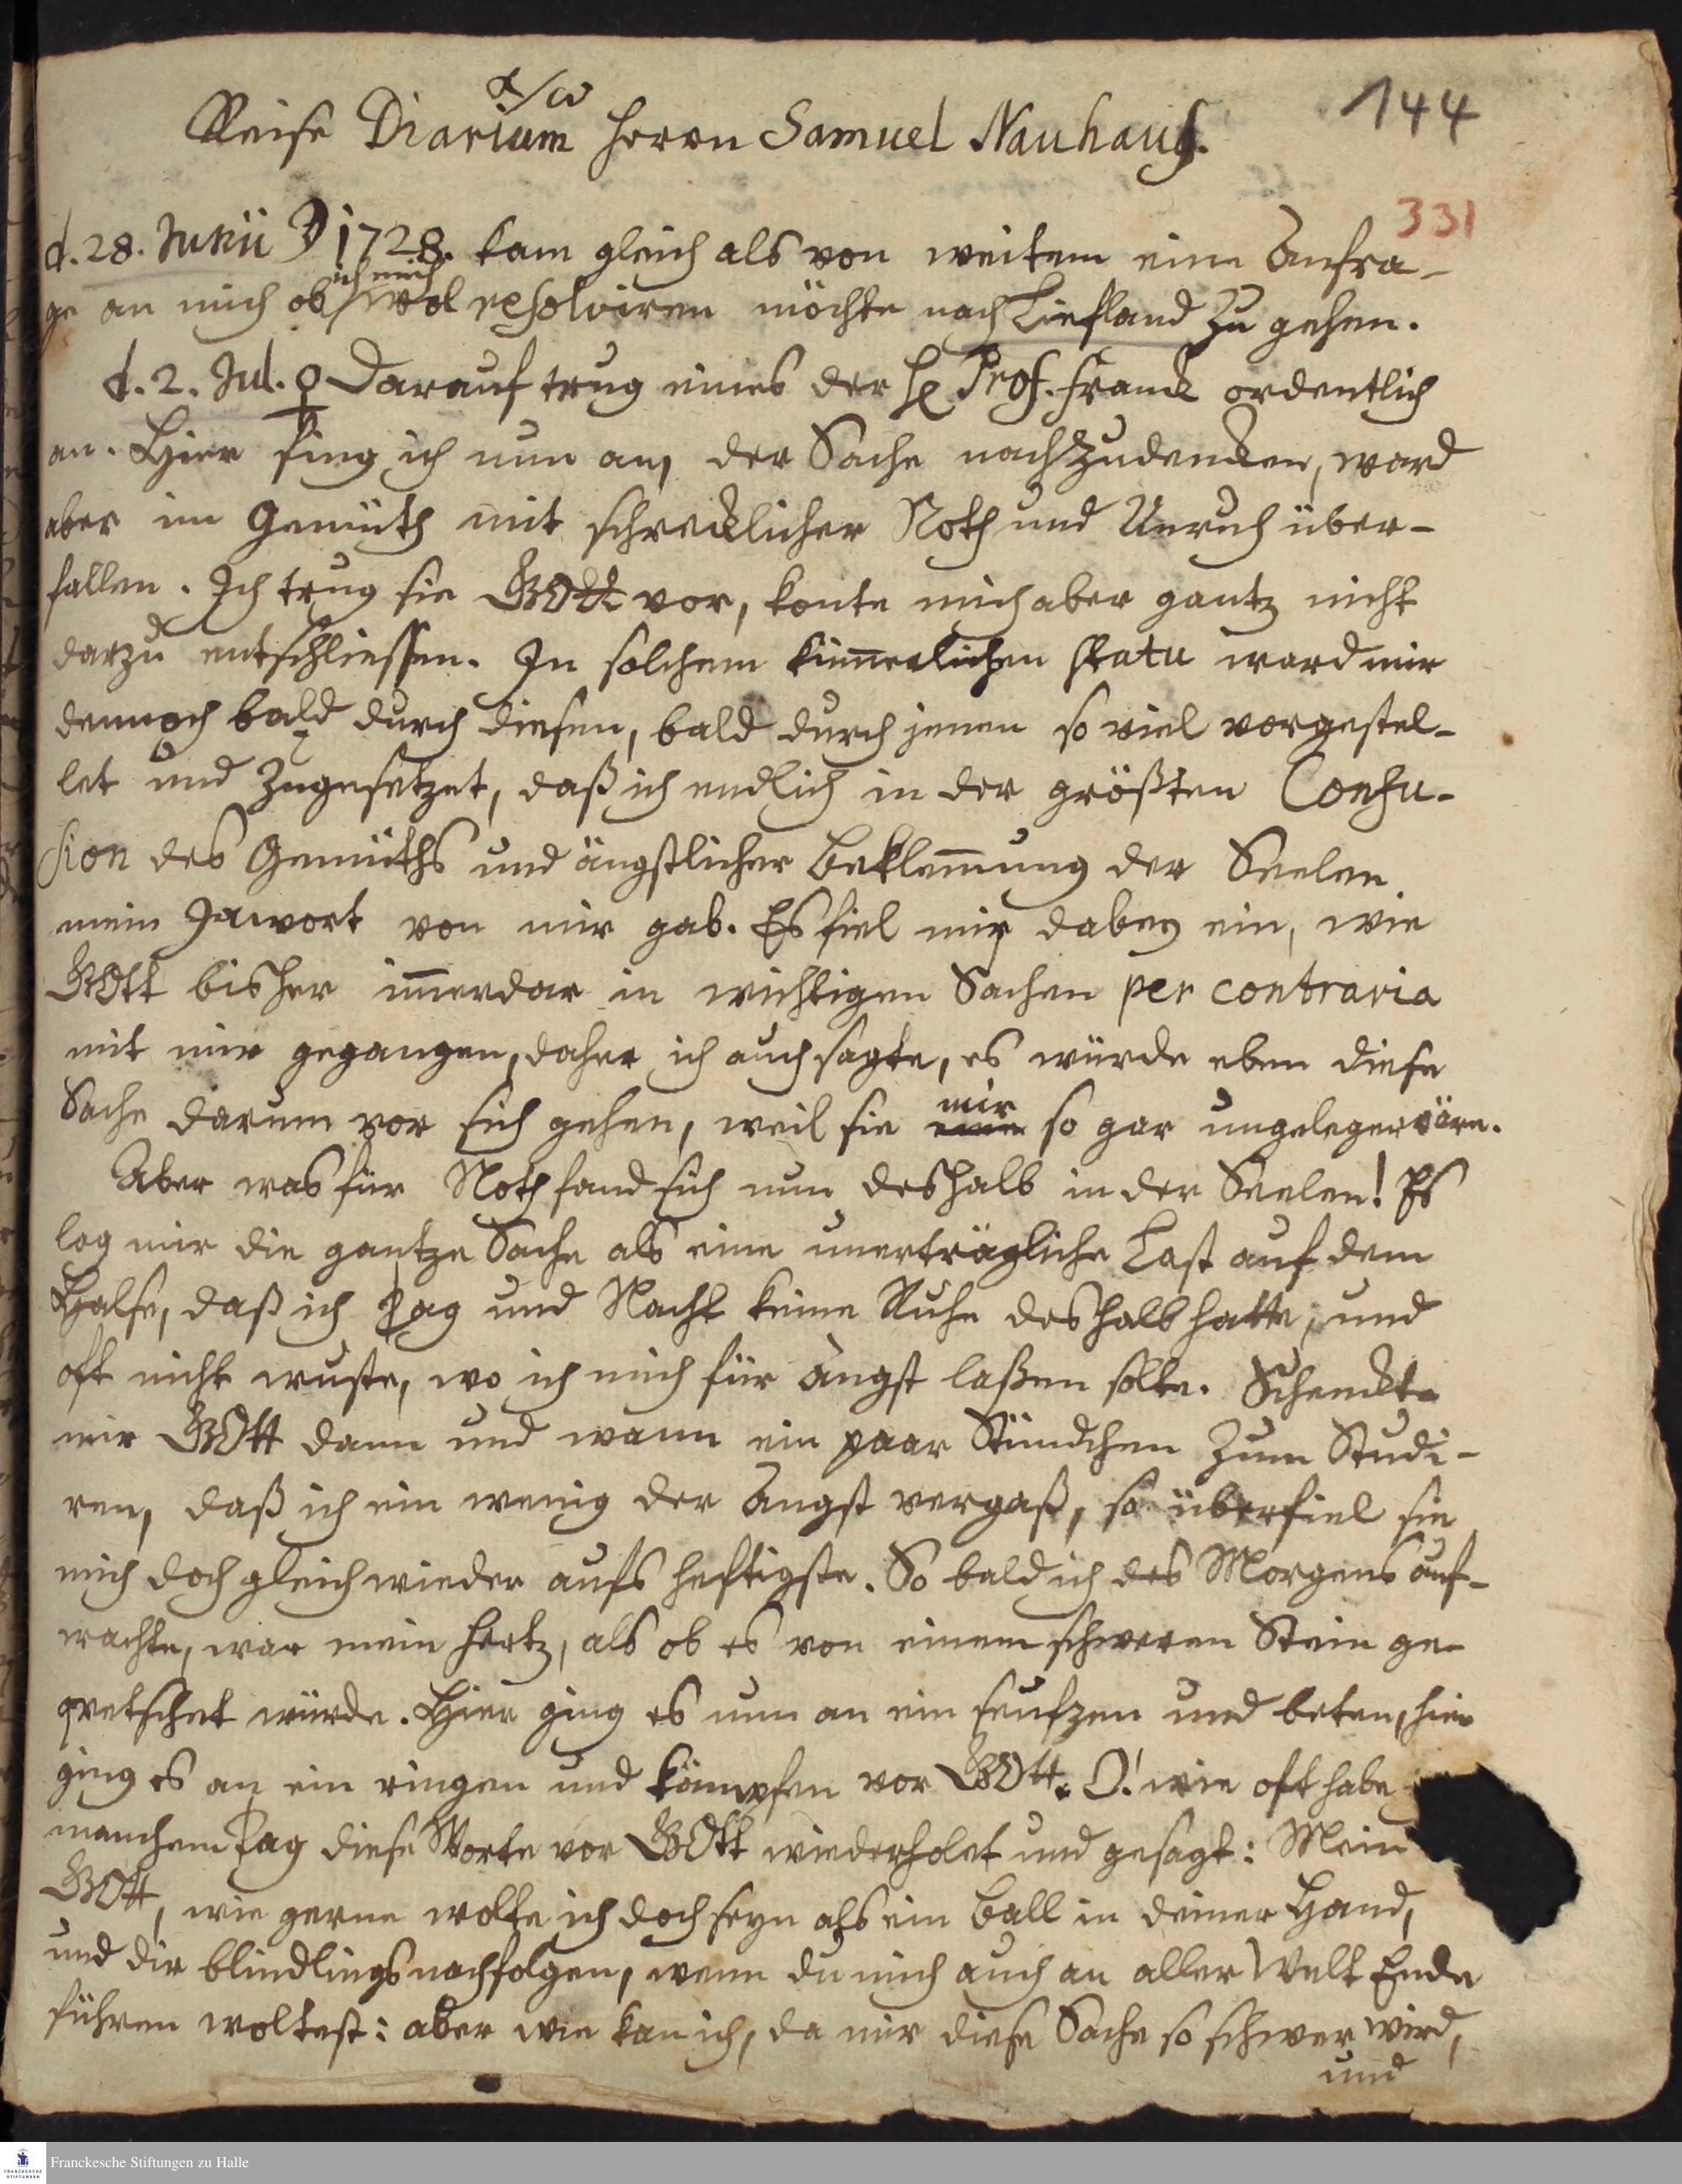 α/ω
144
Reise Diarium Herrn Samuel Nauhauß.
331
d. 28. Junii ☽ 1728. kam gleich als von weitem eine Anfra-
ge an mich ob ich mich wol resolviren möchte nach Liefland zu gehen.
d. 2. Jul. ♀ Darauf trug eines der H Prof. Franck ordentlich
an. Hier fing ich nun an, der Sache nachzudencken, ward
aber im Gemüth mit schrecklicher Noth und Unruh über-
fallen. Ich trug sie GOtt vor, konte mich aber gantz nicht
darzu entschliessen. In solchem kümerlichen statu ward mir
dennoch bald durch diesen, bald durch jenen so viel vorgestel-
let und zugesetzet, daß ich endlich in der größten Confu-
sion des Gemüths und ängstlicher Beklemung der Seelen
mein Jawort von mir gab. Es fiel mir dabey ein, wie
GOtt bisher imerdar in wichtigen Sachen per contraria
mit mir gegangen, daher ich auch sagte, es würde eben diese
Sache darum vor sich gehen, weil sie mir so gar ungelegen wäre.
Aber was für Noth fand sich nun deshalb in der Seelen! Es
lag mir die gantze Sache als eine unerträgliche Last auf dem
Halse, daß ich Tag und Nacht keine Ruhe deshalb hatte, und
oft nicht wuste, wo ich mich für Angst laßen solte. Schenckte
mir GOtt dann und wann ein paar Stündchen zum Studi-
ren, daß ich ein wenig der Angst vergaß, so überfiel sie
mich doch gleich wieder aufs heftigste. So bald ich des Morgens auf-
wachte, war mein Hertz, als ob es von einem schweren Stein ge-
qvetschet würde. Hier ging es nun an ein seufzen und beten, hier
ging es an ein ringen und kämpfen vor GOtt. O! wie oft habe
manchem Tag diese Worte vor GOtt wiederholet und gesagt: Mein
GOtt, wie gerne wolte ich doch seyn als ein Ball in deiner Hand,
und dir blindlings nachfolgen, wenn du mich auch an aller Welt Ende
führen woltest: aber wie kan ich, da mir diese Sache so schwer wird,
und
Franckesche Stiftungen zu Halle